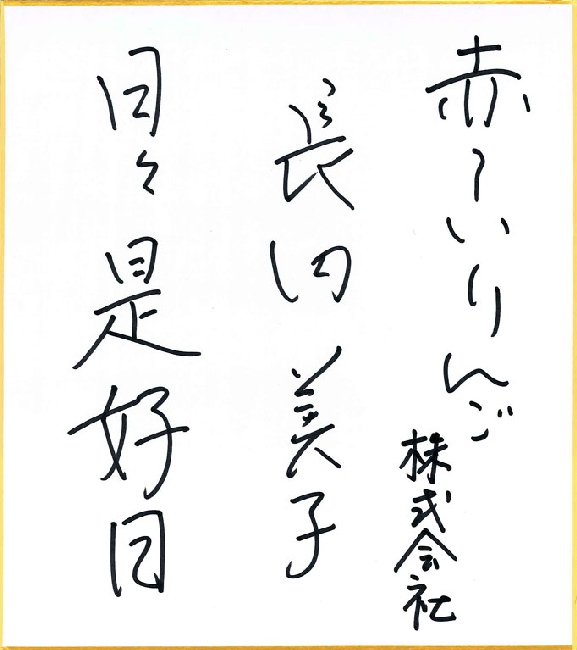 赤〜いりんご
株式会社
長田美子
日々是好日